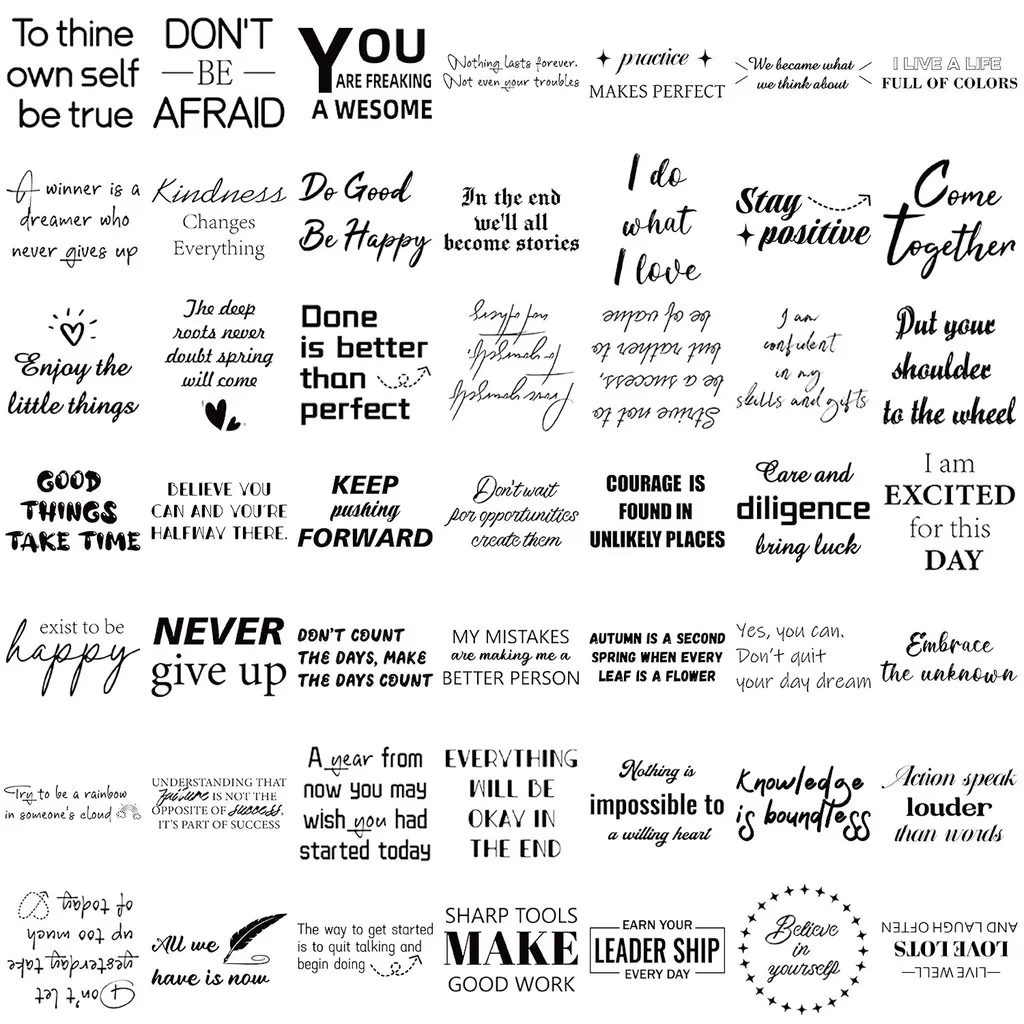 To thine
own self
be true
DON'T
BE
AFRAID
YOU
ARE FREAKING
A WESOME
Nothing lasts forever.
Not even your troubles
practice
MAKES PERFECT
We became what
we think about
I LIVE A LIFE
FULL OF COLORS
A winner is a
dreamer who
never gives up
Kindness
Changes
Everything
Do Good
Be Happy
In the end
we'll all
become stories
I do
what
I love
Stay
positive
Come
together
Enjoy the
little things
The deep
roots never
doubt spring
will come
Done
is better
than
perfect
Love yourself,
to yourself,
not others
Strive not to
be a success,
but rather to
be of value
I am
confident
in my
skills and gifts
Put your
shoulder
to the wheel
GOOD
THINGS
TAKE TIME
BELIEVE YOU
CAN AND YOU'RE
HALFWAY THERE.
KEEP
pushing
FORWARD
Don't wait
for opportunities
create them
COURAGE IS
FOUND IN
UNLIKELY PLACES
Care and
diligence
bring luck
I am
EXCITED
for this
DAY
exist to be
happy
NEVER
give up
DON'T COUNT
THE DAYS, MAKE
THE DAYS COUNT
MY MISTAKES
are making me a
BETTER PERSON
AUTUMN IS A SECOND
SPRING WHEN EVERY
LEAF IS A FLOWER
Yes, you can.
Don't quit
your day dream
Embrace
the unknown
Try to be a rainbow
in someone's cloud
UNDERSTANDING THAT
failure IS NOT THE
OPPOSITE OF success,
IT'S PART OF SUCCESS
A year from
now you may
wish you had
started today
EVERYTHING
WILL BE
OKAY IN
THE END
Nothing is
impossible to
a willing heart
Knowledge
is boundless
Action speak
louder
than words
Don't let
yesterday take
up too much
of today
All we
have is now
The way to get started
is to quit talking and
begin doing
SHARP TOOLS
MAKE
GOOD WORK
EARN YOUR
LEADER SHIP
EVERY DAY
Believe
in
yourself
LIVE WELL
LOVE LOTS
AND LAUGH OFTEN